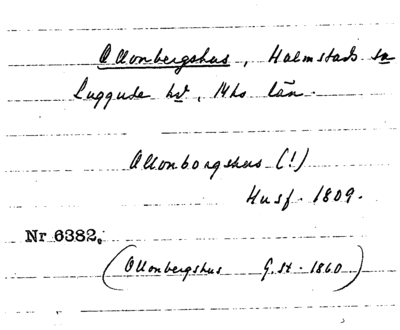 Ollonbergshus, Halmstads sn
Luggude hd, Mhs län.
Ollonborgshus (!)
Husf. 1809.
Nr 6382.
(Ollonbergshus G.st. 1860)